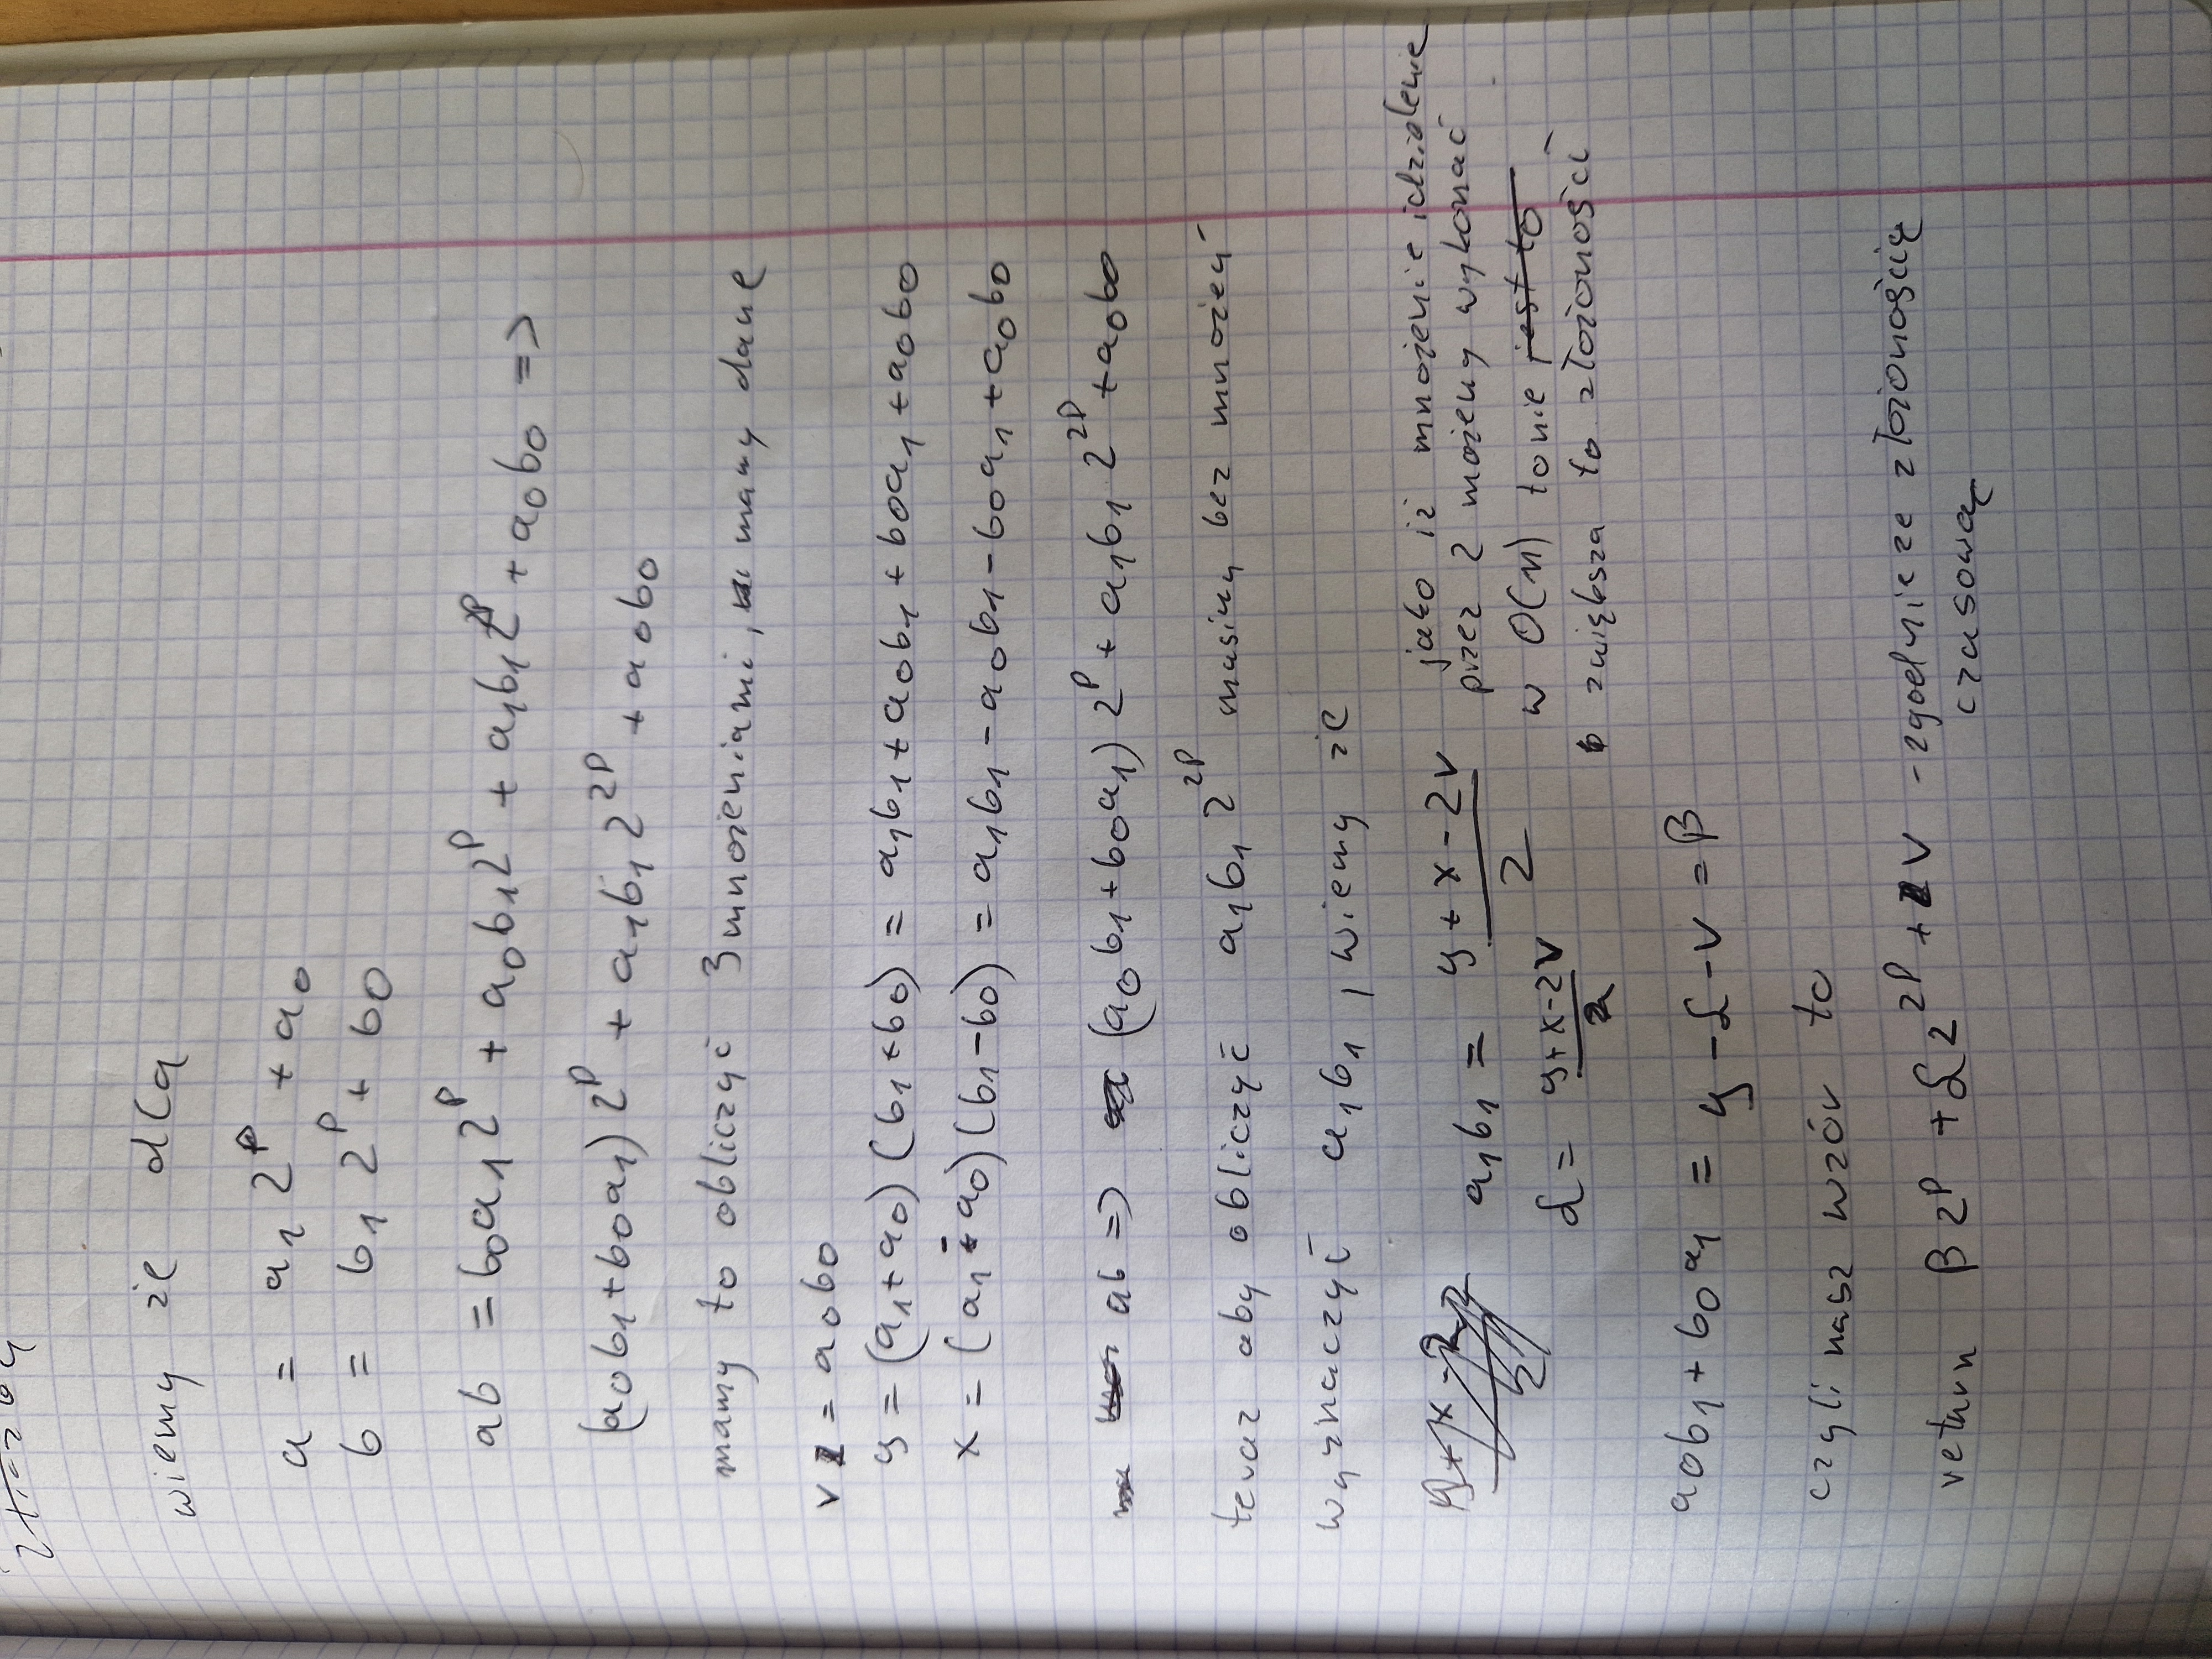 wiemy że dla
a = a₁ 2ᵖ + a₀
b = b₁ 2ᵖ + b₀
ab = b₀a₁2ᵖ + a₀b₁2ᵖ + a₁b₁2²ᵖ + a₀b₀ =>
(a₀b₁+b₀a₁) 2ᵖ + a₁b₁ 2²ᵖ + a₀b₀
mamy to obliczyć 3 mnożeniami, mamy dane
v = a₀b₀
y = (a₁+a₀) (b₁+b₀) = a₁b₁+a₀b₁+b₀a₁+a₀b₀
x = (a₁-a₀) (b₁-b₀) = a₁b₁-a₀b₁-b₀a₁+a₀b₀
ab => (a₀b₁+b₀a₁) 2ᵖ + a₁b₁ 2²ᵖ + a₀b₀
teraz aby obliczyć a₁b₁ 2²ᵖ musimy bez mnożeń
wyznaczyć a₁b₁, wiemy że
a₁b₁ = (y + x - 2v)/2
jako iż mnożenie i dzielenie
przez 2 możemy wykonać
w O(n) to nie jest to
zwiększa to złożoności
α = (y+x-2v)/2
a₀b₁+b₀a₁ = y - α - v = β
czyli nasz wzór to
return β 2ᵖ + α 2²ᵖ + v - zgodnie ze złożonością
czasową